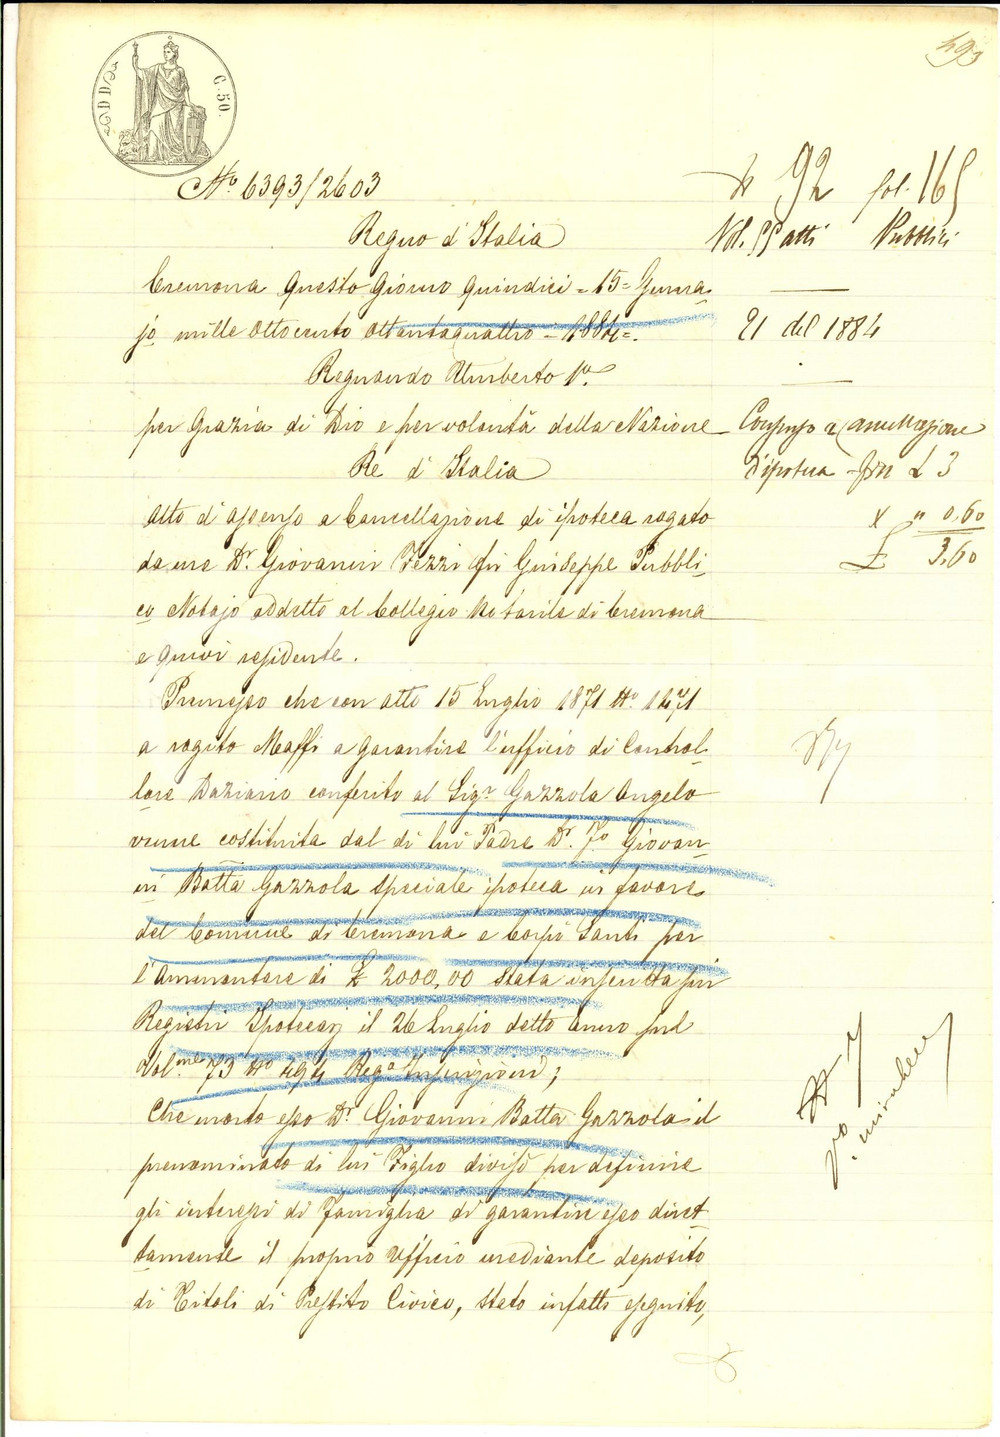 C. 50.
N.o 6393/2603
Regno d'Italia
Cremona questo giorno quindici = 15 = Genna-
jo mille ottocento ottantaquattro = 1884 =.
Regnando Umberto 1o.
per grazia di Dio e per volontà della Nazione
Re d'Italia
Atto d'assenso a Cancellazione di ipoteca rogato
da me Dr. Giovanni Fezzi fu Giuseppe Pubbli-
co Notajo addetto al Collegio Notarile di Cremona
e quivi residente.
Premesso che con atto 15 Luglio 1871 No. 1271
a rogito Maffi a garantire l'ufficio di Control-
lore Daziario conferito al Sigr. Gazzola Angelo
venne costituita dal di lui Padre Dr. Fo. Giovan-
ni Batta Gazzola speciale ipoteca in favore
del Comune di Cremona e Corpi Santi per
l'ammontare di £ 2000,00 stata inscritta sui
Registri Ipotecarj il 26 Luglio detto Anno sul
Vol.me 73 No 494 Rego. Inscrizioni;
Che morto esso Dr. Giovanni Batta Gazzola il
prenominato di lui Figlio divisò per definire
gli interessi di Famiglia di garantire esso diret-
tamente il proprio Ufficio mediante deposito
di Titoli di Prestito Civico, stato infatti eseguito,
92 fol. 165
Vol. Atti Pubblici
21 del 1884
Compenso a Cancellazione
d'ipoteca £ 3
" 0.60
£ 3.60